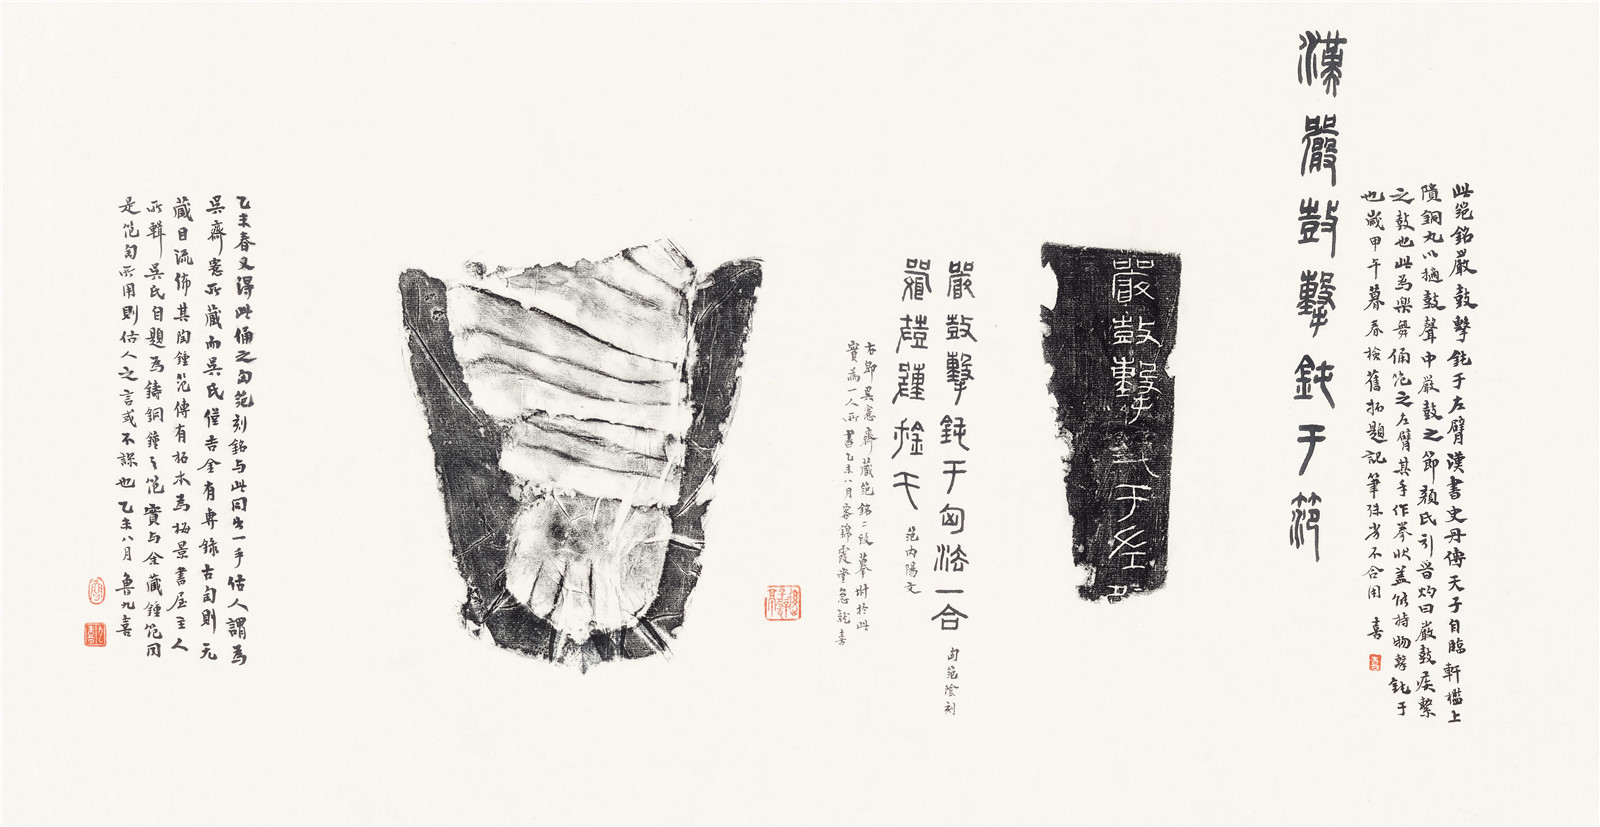 漢嚴鼓擊鈍于範
此笵銘嚴鼓擊鈍于左臂漢書史丹傳天子自臨軒檻上
隤銅丸以擿鼓聲中嚴鼓之節顏氏引晉灼曰嚴鼓疾擊
之鼓也此為樂舞俑笵之左臂其手作拳狀蓋似持物擊鈍于
也歲甲午暮春檢舊拓題記筆殊劣不合用 喜
嚴鼓擊
于
嚴鼓擊鈍于匋法一合 匋笵陰刻
笵內陽文
右節吳愙齋藏笵銘二段摹坿於此
實為一人所書乙未八月客錦霞堂急就 喜
乙未春又得此俑之匋笵刻銘與此同出一手估人謂為
吳齋愙所藏而吳氏僅吉金有專錄古匋則无
藏目流佈其陶鍾笵傳有拓本為梅景書屋主人
所輯吳氏自題為鑄銅鐘之笵實與余藏鍾笵同
是笵匋所用則估人之言或不誤也乙未八月 魯九喜